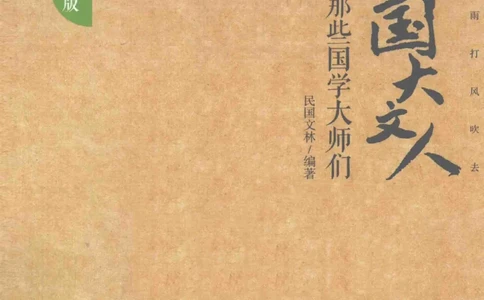 雨打风吹去
国大文人
那些国学大师们
民国文林/编著
版